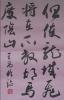 但使龍城飛
將在不教胡馬
度陰山